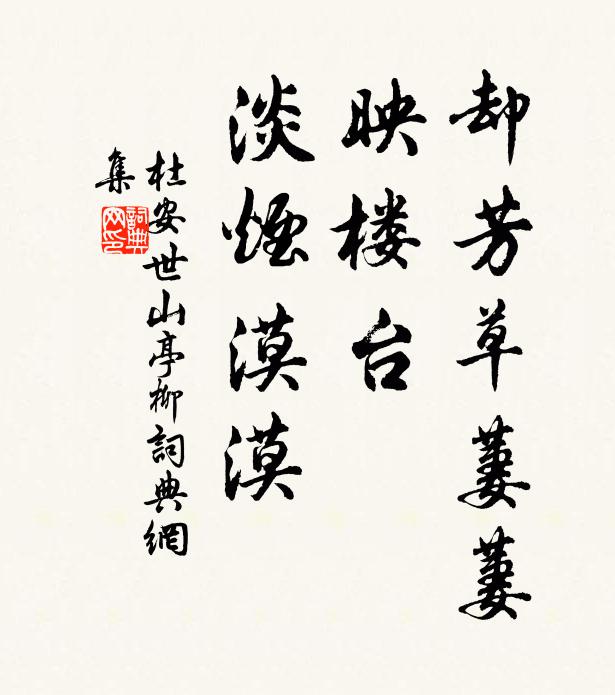 却芳草萋萋
映楼台
淡煙漠漠
杜安世山亭柳詞典網
集
詞典
网印